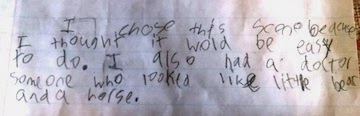 I chose this scene because
I thought it wold be easy
to do. I also had a doctor
someone who looked like little bear
and a horse.